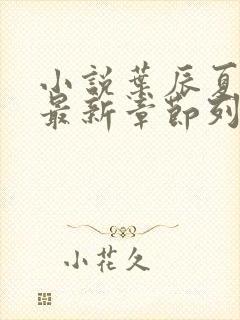 小說葉辰夏
最新章節列
小花久